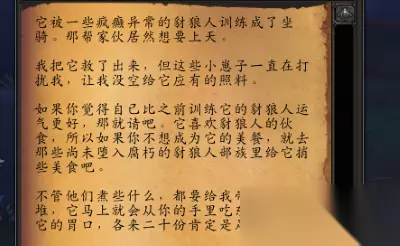 它被一些疯癫异常的豺狼人训练成了坐
骑。那帮家伙居然想要上天。
我把它救了出来，但这些小崽子一直在打
扰我，让我没空给它应有的照料。
如果你觉得自己比之前训练它的豺狼人运
气更好，那就请吧。它喜欢豺狼人的伙
食，所以如果你不想成为它的美餐，就去
那些尚未堕入腐朽的豺狼人部族里给它捎
些美食吧。
不管他们煮些什么，都要给我
堆，它马上就会从你的手里吃
它的胃口，各来二十份肯定是